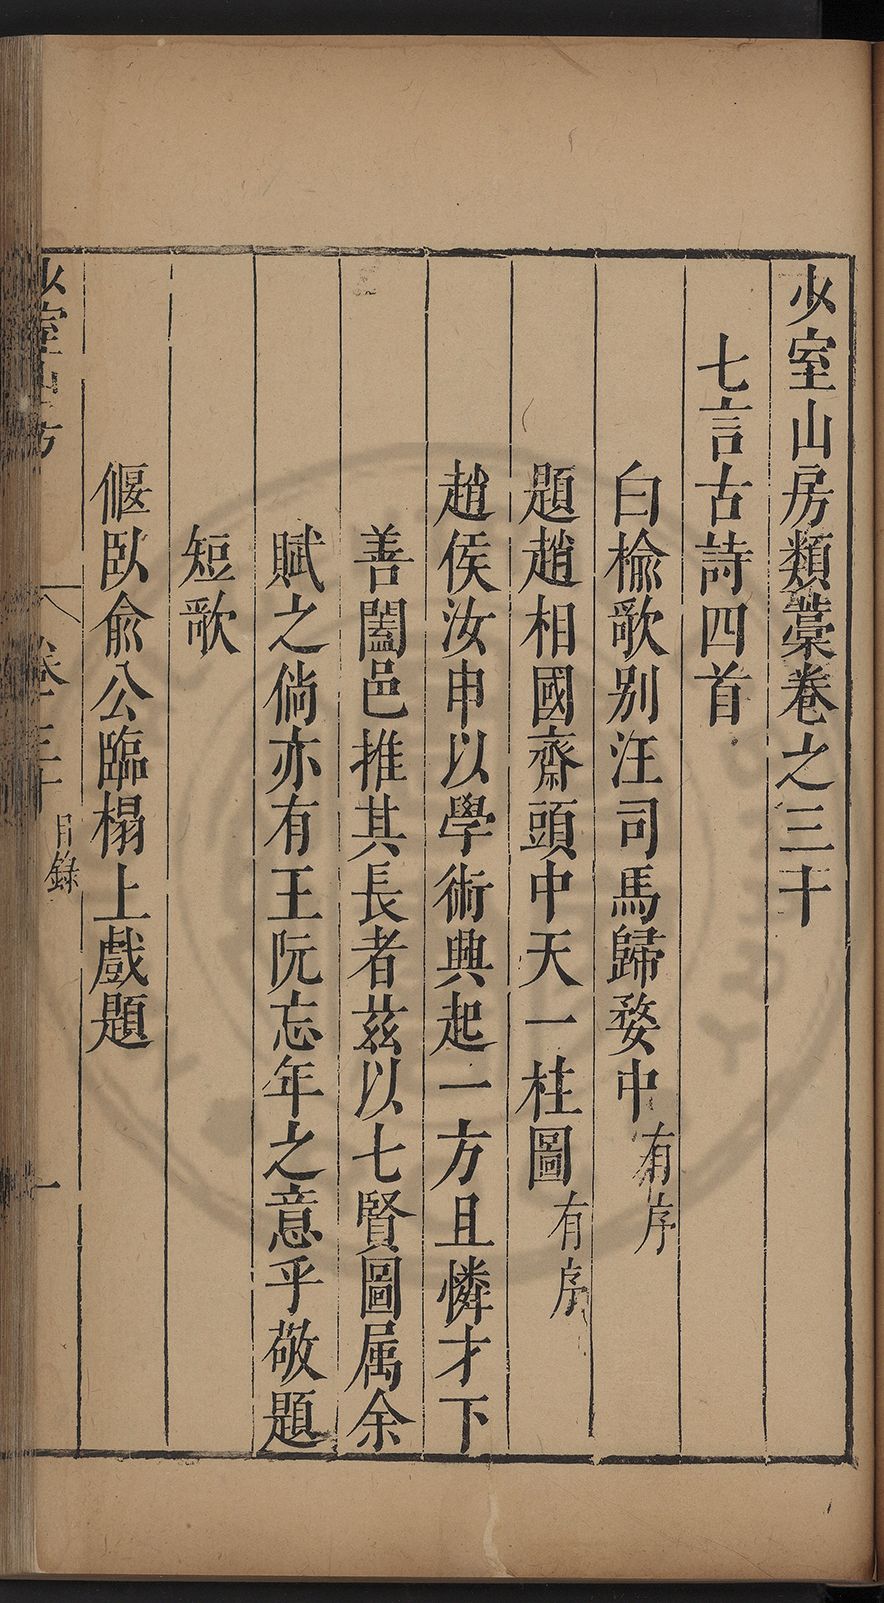 少室山房類藁卷之三十
七言古詩四首
白榆歌別汪司馬歸婺中有序
題趙相國齋頭中天一柱圖有序
趙侯汝申以學術興起一方且憐才下
善闔邑推其長者茲以七賢圖属余
賦之倘亦有王阮忘年之意乎敬題
短歌
偃臥俞公臨榻上戲題
少室山房 卷三十 目錄 一